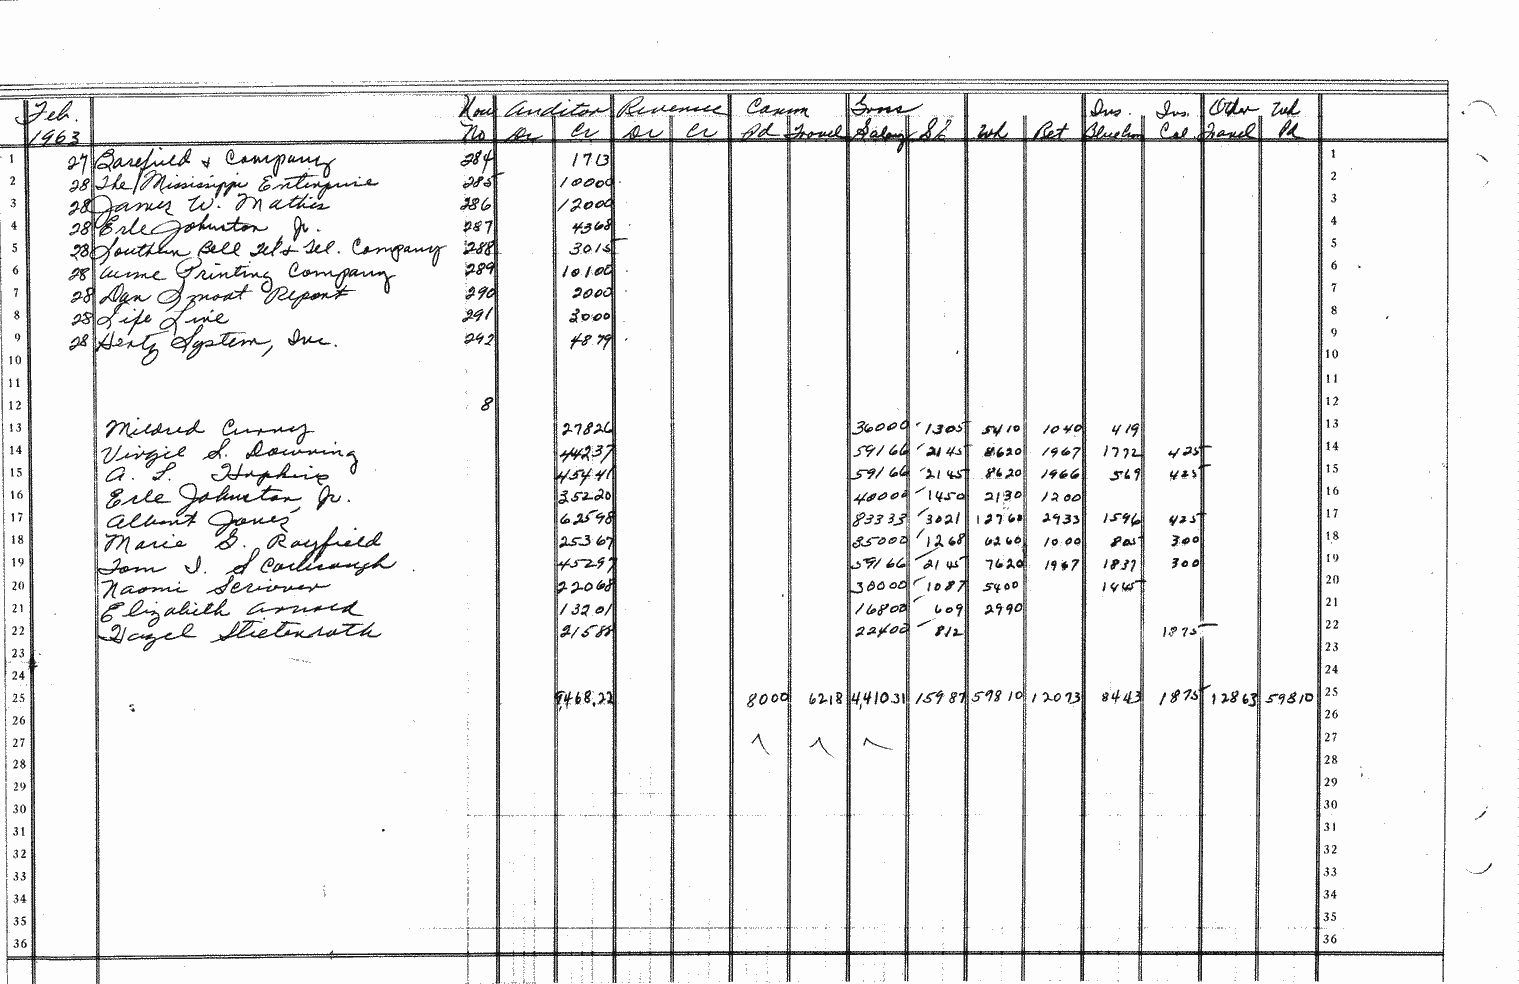 Feb. Auditor Revenue Comm Gross Ins. Ins. Other Wh
1963 No Dr Cr Dr Cr Pd Travel Salary S.S. Wh Ret Bluechrs Col Travel Pd
1 27 Barefield & Company 284 1713 1
2 28 The Mississippi Enterprise 285 10000 2
3 28 James W. Mathis 286 12000 3
4 28 Erle Johnston Jr. 287 4368 4
5 28 Southern Bell Tel & Tel. Company 288 3015 5
6 28 Acme Printing Company 289 10100 6
7 28 Dan Smoot Report 290 2000 7
8 28 Life Line 291 3000 8
9 28 Hertz System, Inc. 292 4879 9
10 10
11 11
12 8 12
13 Mildred Curney 27826 36000 1305 5410 1040 419 13
14 Virgil S. Downing 44237 59166 2145 8620 1967 1772 425 14
15 A. L. Hopkins 45441 59166 2145 8620 1966 569 425 15
16 Erle Johnston, Jr. 35220 40000 1450 2130 1200 16
17 Albert Jones 62598 83333 3021 12760 2933 1596 425 17
18 Marie G. Rayfield 25367 35000 1268 6260 1000 805 300 18
19 Tom I. Scarbrough 45297 59166 2145 7620 1967 1837 300 19
20 Naomi Scrivner 22068 30000 1087 5400 1445 20
21 Elizabeth Arnold 13201 16800 609 2990 21
22 Hazel Stietenroth 21588 22400 812 22
23 1875 23
24 24
25 9,468.22 8000 6218 4,41031 15987 59810 12073 8443 1875 12863 59810 25
26 26
27 27
28 28
29 29
30 30
31 31
32 32
33 33
34 34
35 35
36 36